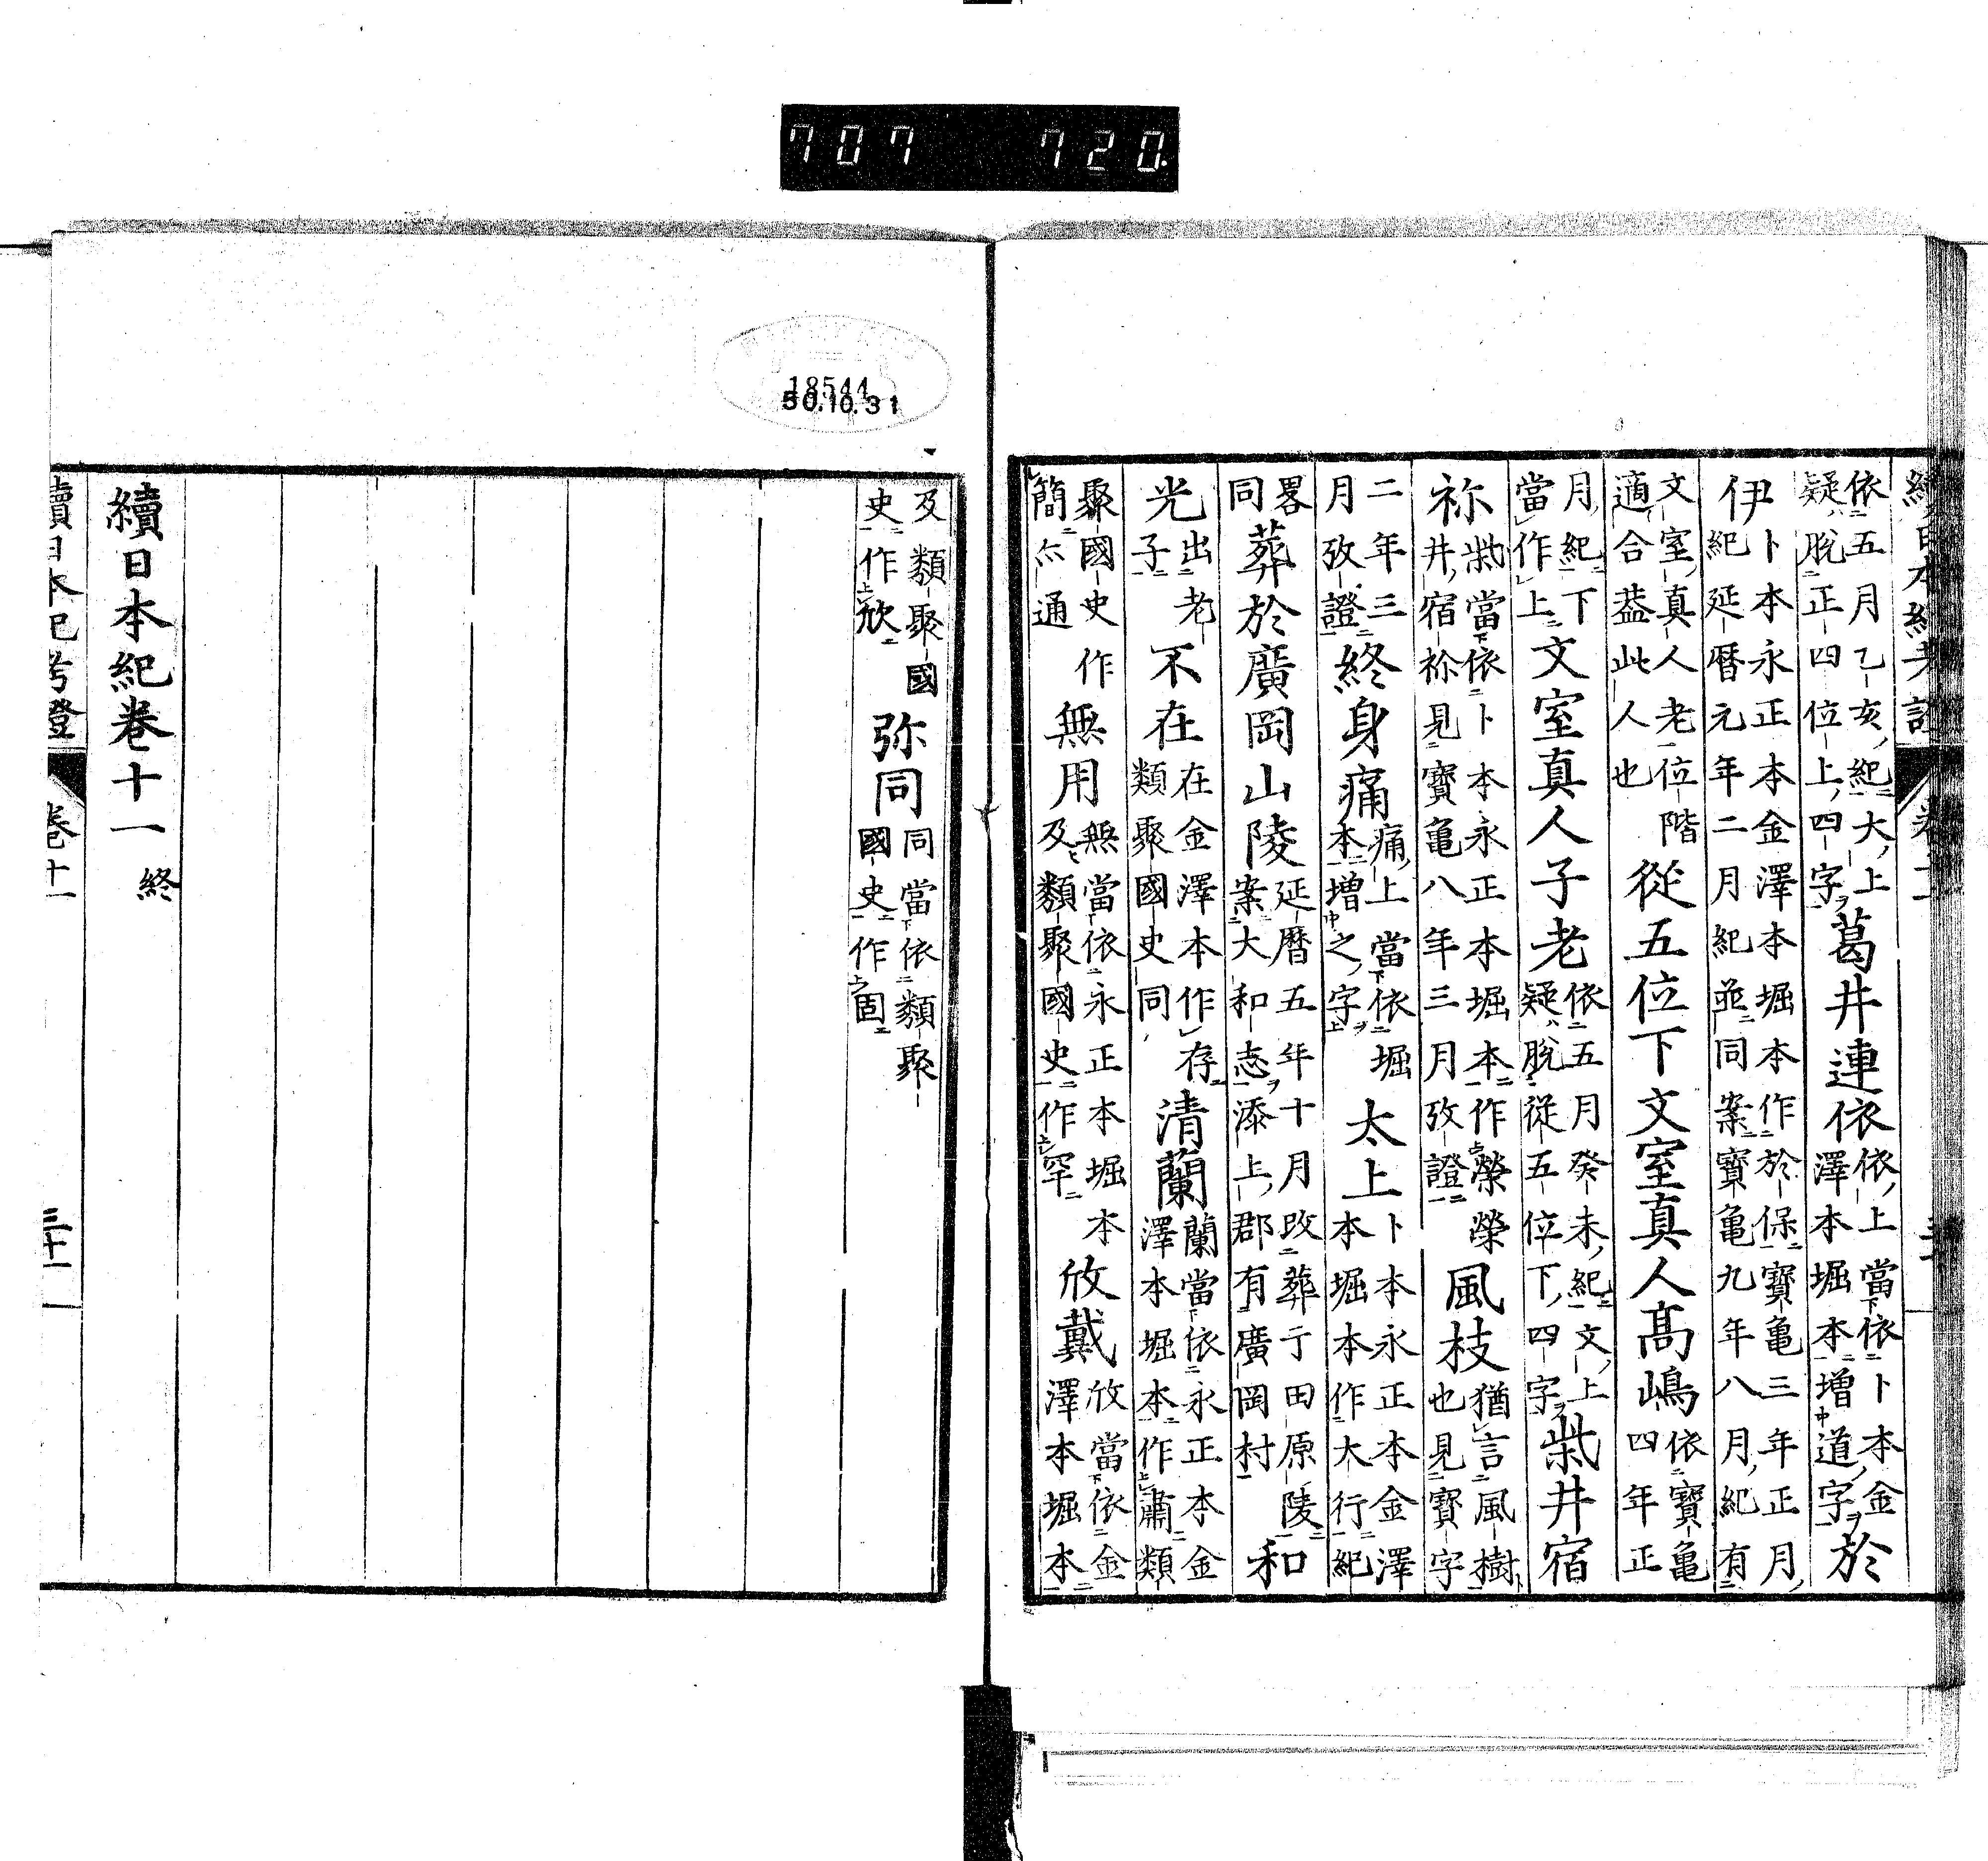 707 720.
18544
50.10.31
依五月乙亥紀大上
疑脫正四位上四字葛井連依依上當依卜本金
澤本堀本增道字於
伊卜本永正本金澤本堀本作於保寶亀三年正月
紀延曆元年二月紀並同案寶亀九年八月紀有
文室真人老位階
適合葢此人也從五位下文室真人髙嶋依寶亀
四年正
月紀下
當作上文室真人子老依五月癸未紀文上
疑脫從五位下四字柴井宿
祢柴當依卜本永正本堀本作榮榮
井宿祢見寶亀八年三月攷證風枝猶言風樹
也見寶字
二年三
月攷證終身痛痛上當依堀
本增之字太上卜本永正本金澤
本堀本作大行紀
畧
同葬於廣岡山陵延曆五年十月改葬于田原陵
案大和志添上郡有廣岡村和
光出老
子不在在金澤本作存
類聚國史同清蘭蘭當依永正本金
澤本堀本作肅類
聚國史作
簡亦通無用無當依永正本堀本
及類聚國史作罕攸戴攸當依金
澤本堀本
及類聚國
史作欣弥同同當依類聚
國史作固
續日本紀卷十一 終
續日本紀考證 卷十一 三十一